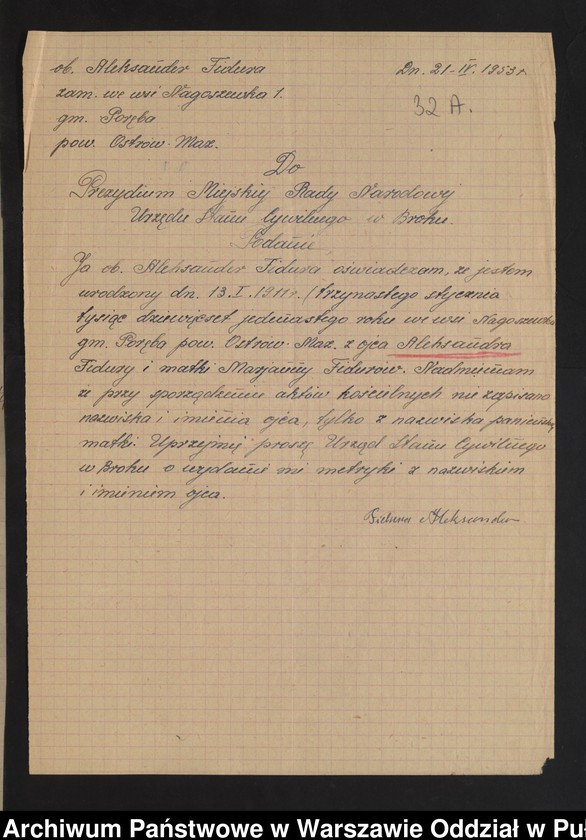 ob. Aleksander Fidura
Dn. 21-IV. 1953 r.
zam. we wsi Nagoszewska 1.
32 A.
gm. Poręba
pow. Ostrów. Maz.
Do
Prezydium Miejskiej Rady Narodowej
Urzędu Stanu Cywilnego w Broku.
Podanie
Ja ob. Aleksander Fidura oświadczam, że jestem
urodzony dn. 13.I.1911 r. (trzynastego stycznia
tysiąc dziewięset jedenastego roku we wsi Nagoszewska
gm. Poręba pow. Ostrów. Maz. z ojca Aleksandra
Fidury i matki Marjanny Fidurów. Nadmieniam
że przy sporządzeniu aktów kościelnych nie zapisano
nazwiska i imienia ojca, tylko z nazwiska panieńskiej
matki. Uprzejmię proszę Urząd Stanu Cywilnego
w Broku o wydanie mi metryki z nazwiskiem
i imieniem ojca.
Fidura Aleksander
Archiwum Państwowe w Warszawie Oddział w Pu